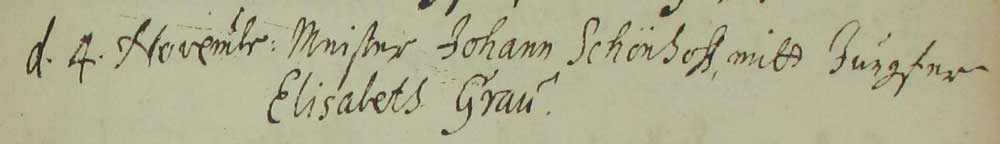 d. 4. Novembr: Meister Johann Schönhoff, mitt Jungfer
Elisabeth Grau.